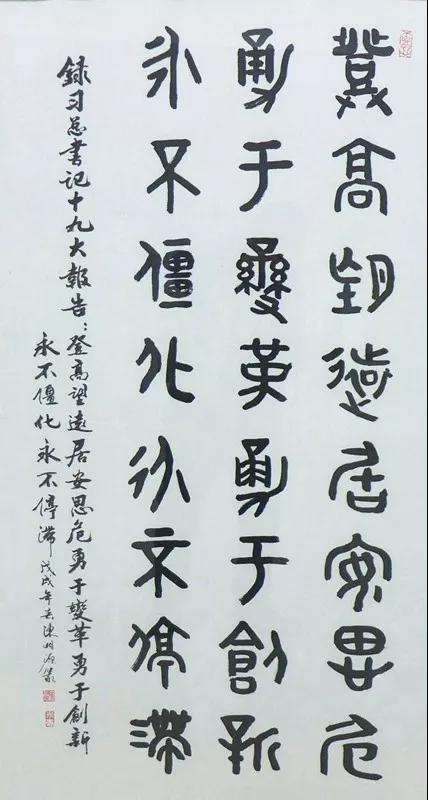 登高望遠居安思危
勇于變革勇于創新
永不僵化永不停滯
録习总書记十九大報告：登高望遠居安思危勇于變革勇于創新
永不僵化永不停滯 戊戌年春陳明篆